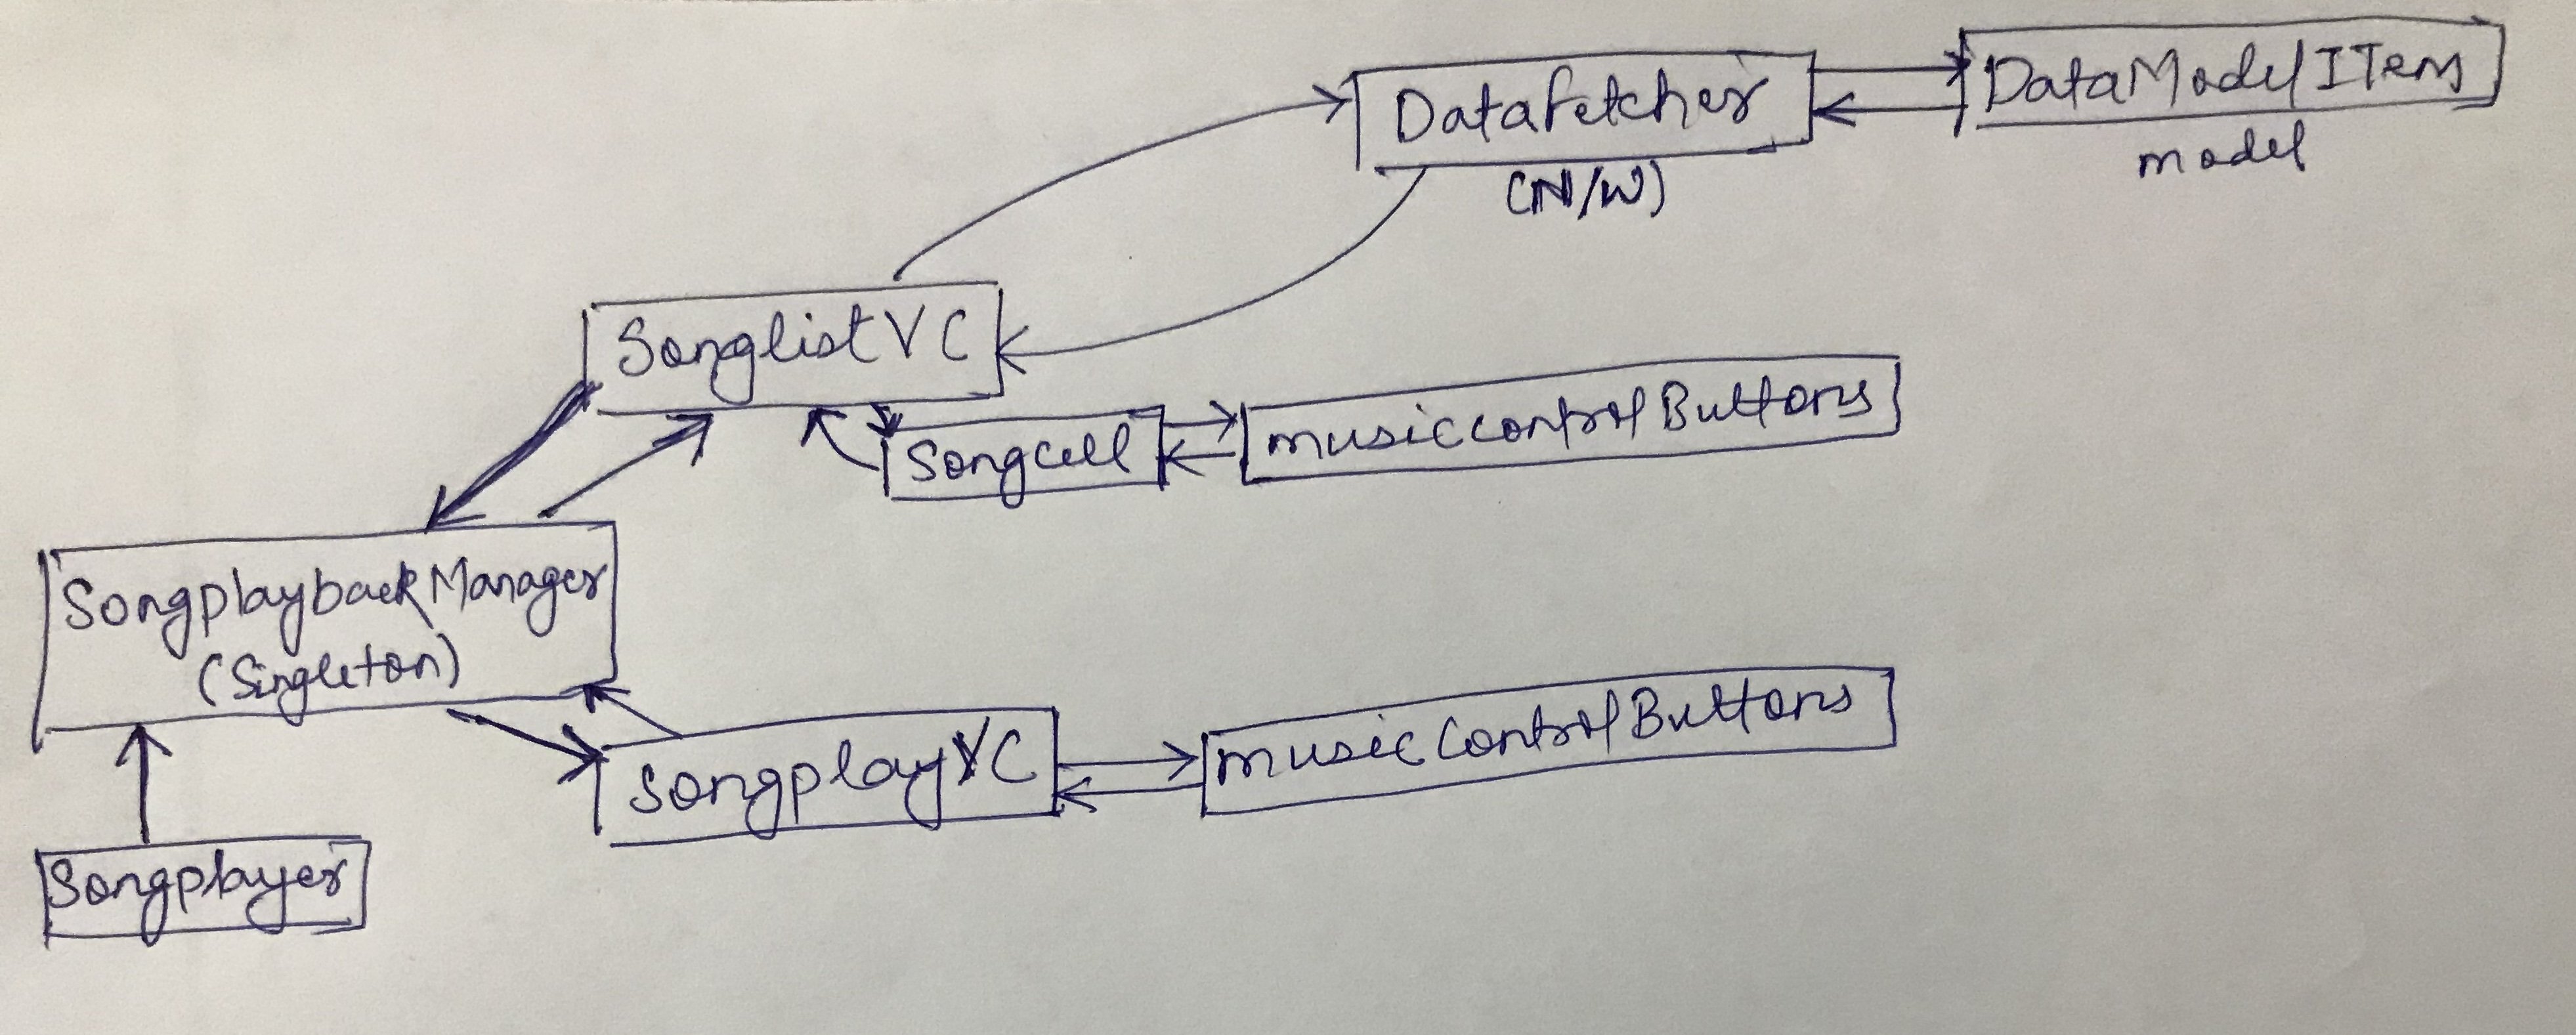 Datafetcher
(N/W)
DataModelITem
model
SonglistVC
Songcell
musiccontrolButtons
SongplaybackManager
(Singleton)
SongplayVC
musiccontrolButtons
Songplayer